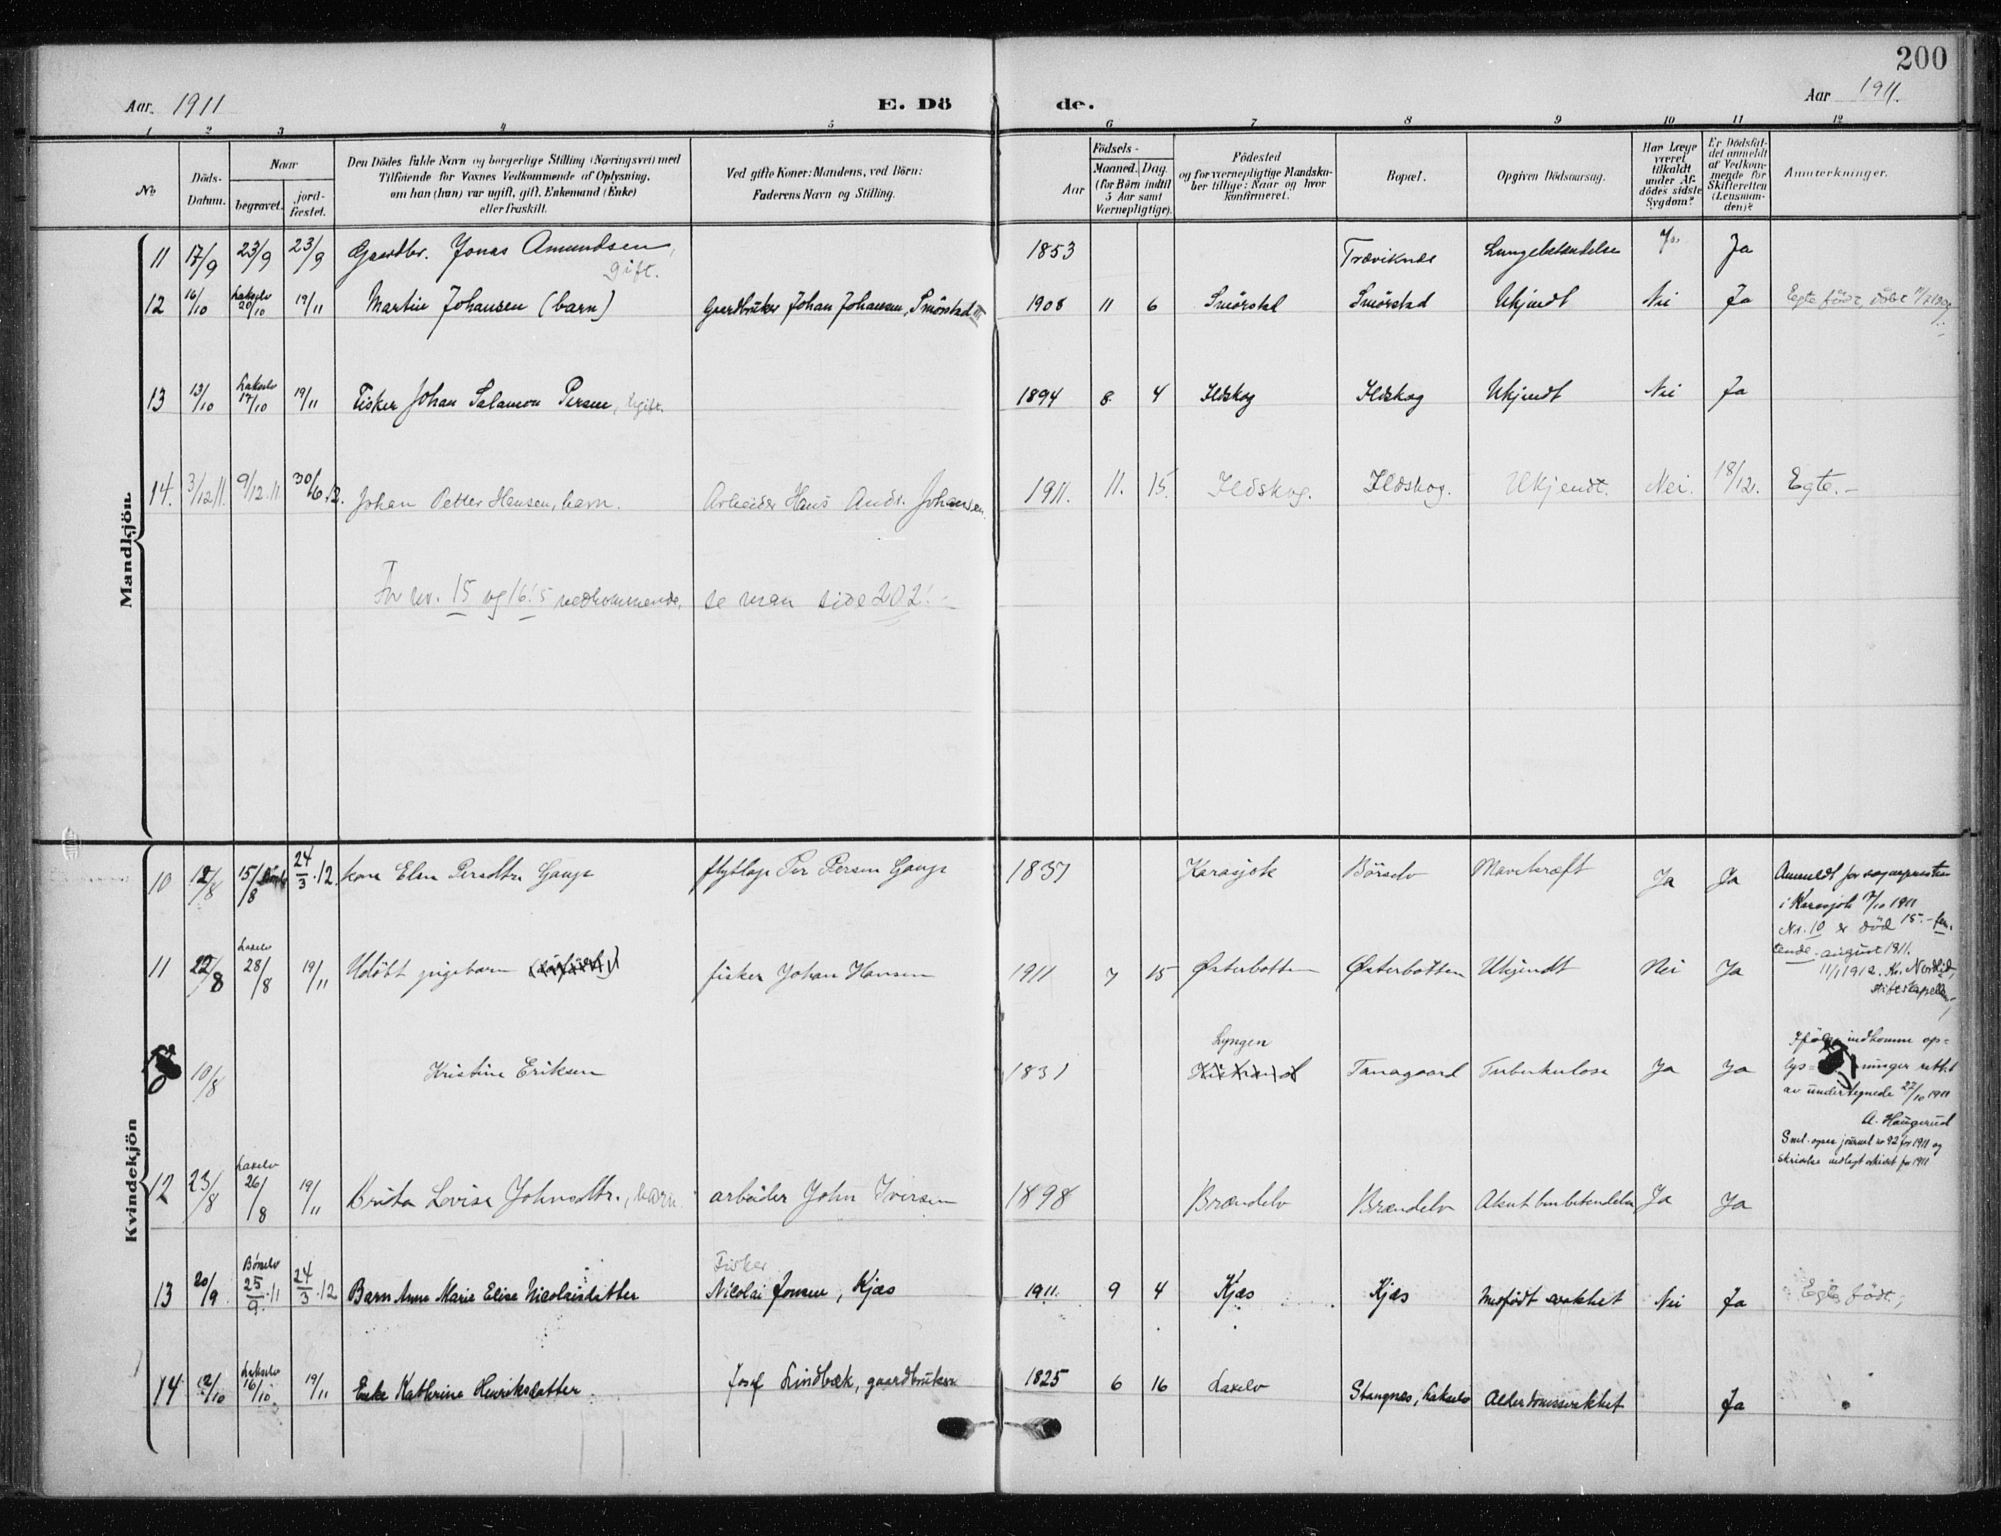 200
Aar 1911 E. Dö de. Aar 1911.
1 2 3 4 5 6 7 8 9 10 11 12
No
Döds-Datum.
Naar
begravet.
jord-fæstet.
Den Dödes fulde Navn og borgerlige Stilling (Næringsvei) med
Tilföiende for Voxnes Vedkommende af Oplysning,
om han (hun) var ugift, gift, Enkemand (Enke)
eller fraskilt.
Ved gifte Koner: Mandens, ved Börn:
Faderens Navn og Stilling.
Födsels-
Aar
Maaned.
Dag.
(for Börn indtil
5 Aar samt
Værnepligtige).
Födested
og for værnepligtige Mandska-
ber tillige: Naar og hvor
konfirmeret.
Bopæl.
Opgiven Dödsaarsag.
Har Læge
været
tilkaldt
under Af-
dödes sidste
Sygdom?
Er Dödsfal-
det anmeldt
af Vedkom-
mende for
Skifteretten
(Lensman-
den)?
Anmerkninger.
Mandkjön
11 17/9 23/9 23/9 Gaardbr. Jonas Amundsen, 1853 Træviknes Lungebetendelse Ja Ja
gift.
12 16/10 Lakselv 20/10 19/11 Martin Johansen (barn) Gaardbruker Johan Johansen, Smørstad 1908 11 6 Smørstad Smørstad Ukjendt Nei Ja Egte født, døbt
13 13/10 Lakselv 17/10 19/11 Fisker Johan Salamon Persen, ugift. 1894 8 4 Ildskog Ildskog Ukjendt Nei Ja
14. 3/12 11. 9/12. 11 30/6 12. Johan Petter Hansen, barn. Arbeider Hans Andr. Johansen. 1911. 11. 15. Ildskog. Ildskog. Ukjendt. Nei. 18/12. Egte. –
For nr. 15 og 16's vedkommende, se man side 202! –
Kvindekjön
10 12/8 15/8 24/3 . 12. kone Elen Persdtr Gaup flytlap Per Persen Gaup 1837 Karasjok Børselv Mavekræft Ja Ja Anmeldt for sognepresten
i Karasjok 17/10 1911
Nr. 10 er död 15. – fem-
tende. august 1911.
11/1 1912. Kr. Nordlid,
stiftskapellan,
11 22/8 Lakselv 28/8 19/11 Udöbt pigebarn fisker Johan Hansen 1911 7 15 Østerbotten Østerbotten Ukjendt Nei Ja
10/8 Kristine Eriksen 1831 Lyngen Tamagaard Tuberkulose Ja Ja Ifølge indkomne op-
lys= ninger rettet
av undertegnede 27/10 1911
A. Haugerud
Sml. ogsaa journal nr 92 for 1911 og
skrivelse indlagt arkivet for 1911
12 23/8 Lakselv 26/8 19/11 Brita Lovise Johnsdtr., barn. arbeider John Iversen 1898 Brændelv Brændelv Akut benbetendelse Ja Ja
13 20/9 Børselv 25/9. 11 24/3 . 12 Barn Anne Marie Elise Nicolaisdatter Fisker Nicolai Jonsen, Kjæs 1911. 9 4 Kjæs Kjæs Medfödt svakhet Nei Ja Egte födt,
14 12/10 Lakselv 16/10 19/11 Enke Kathrine Henriksdatter. Josef Lindbæk, gaardbruker 1825 6 16 Lakselv Stangnæs, Lakselv Alderdomssvakhet Ja